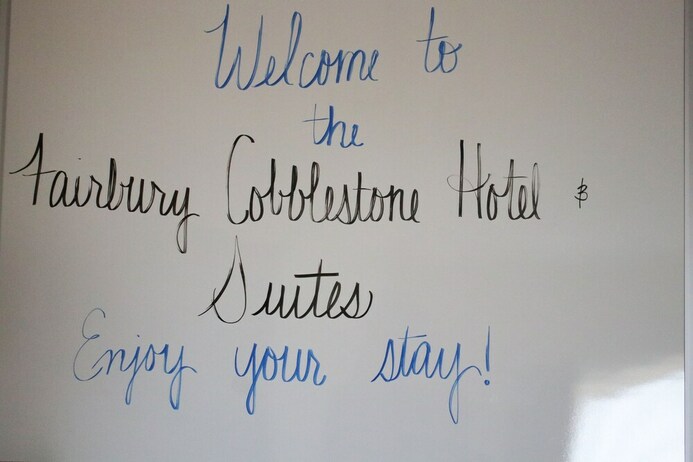 Welcome to
the
Fairbury Cobblestone Hotel &
Suites
Enjoy your stay!